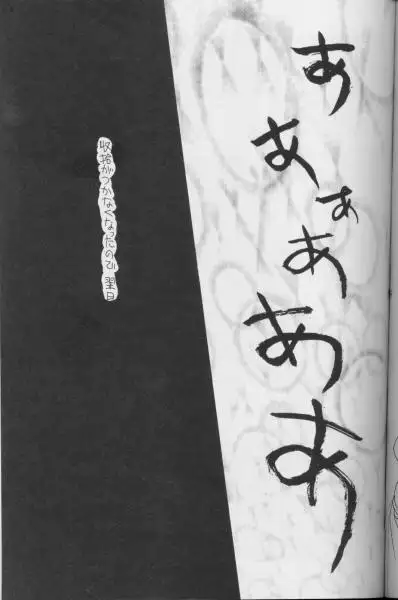 ああぁあああ
収拾がつかなくなったので翌日